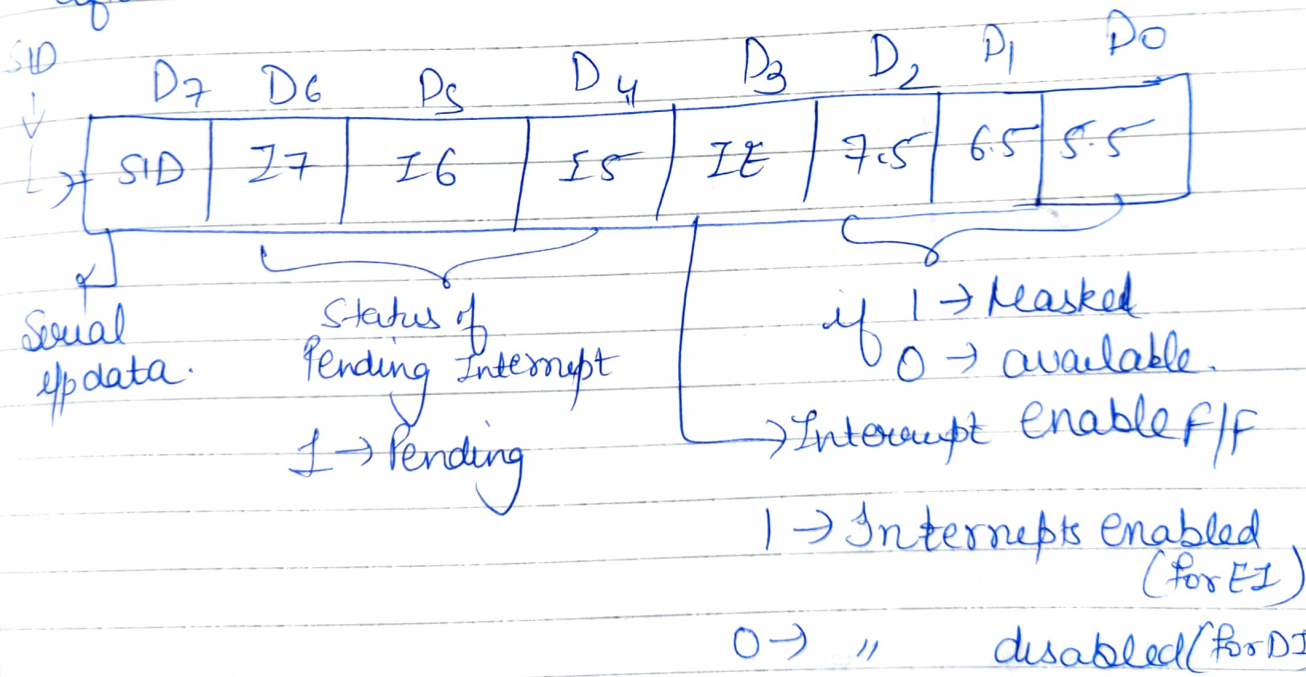 SID
D7 D6 D5 D4 D3 D2 D1 D0
SID I7 I6 I5 IE 7.5 6.5 5.5
Serial
i/p data.
Status of
Pending Interrupt
1 → Pending
if 1 → Masked
0 → available.
→ Interrupt enable F/F
1 → Interrupts enabled
(for EI)
0 → " disabled (for DI